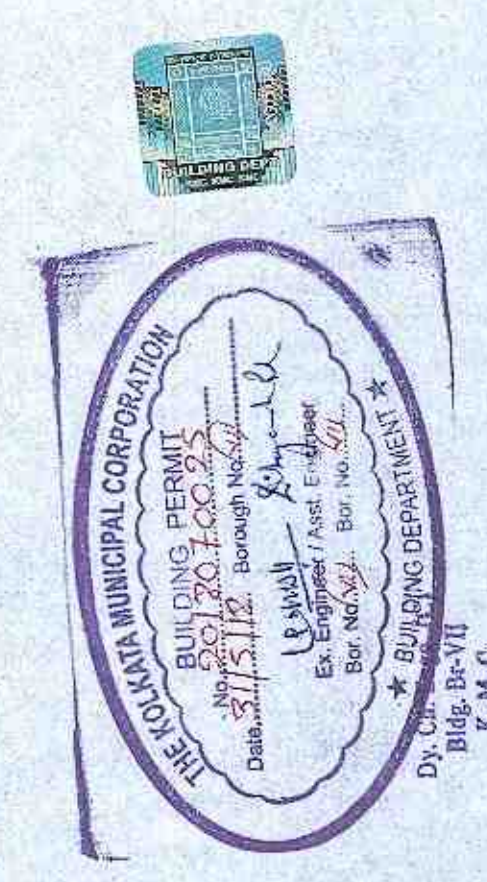 BUILDING DEPT
THE KOLKATA MUNICIPAL CORPORATION
BUILDING PERMIT
No. 2012070025
Date 31/5/12 Borough No. VII
Ex. Engineer / Asst. Engineer
Bor. No. VII Bor. No. VII
★ BUILDING DEPARTMENT ★
Dy. Ch.
Bldg. Br-VII
K. M. C.